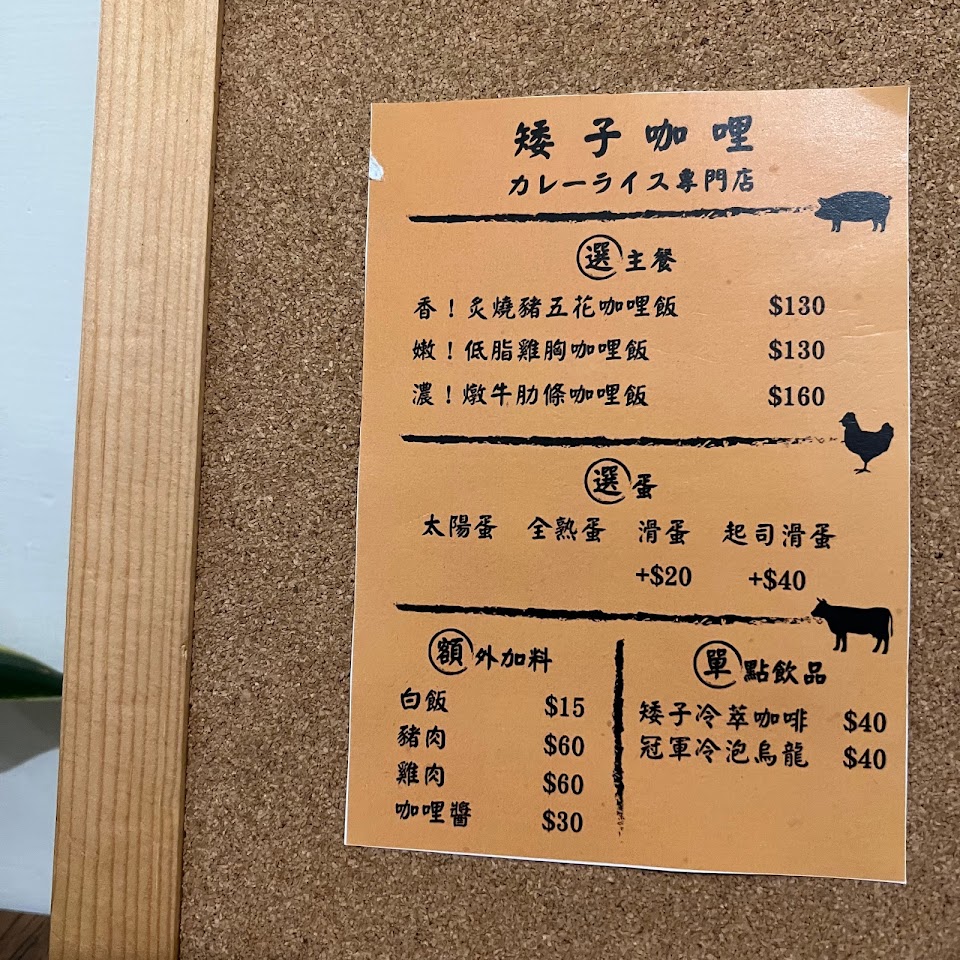 矮子咖哩
カレーライス專門店
選主餐
香！炙燒豬五花咖哩飯 $130
嫩！低脂雞胸咖哩飯 $130
濃！燉牛肋條咖哩飯 $160
選蛋
太陽蛋 全熟蛋 滑蛋 起司滑蛋
+$20 +$40
額外加料
白飯 $15
豬肉 $60
雞肉 $60
咖哩醬 $30
單點飲品
矮子冷萃咖啡 $40
冠軍冷泡烏龍 $40